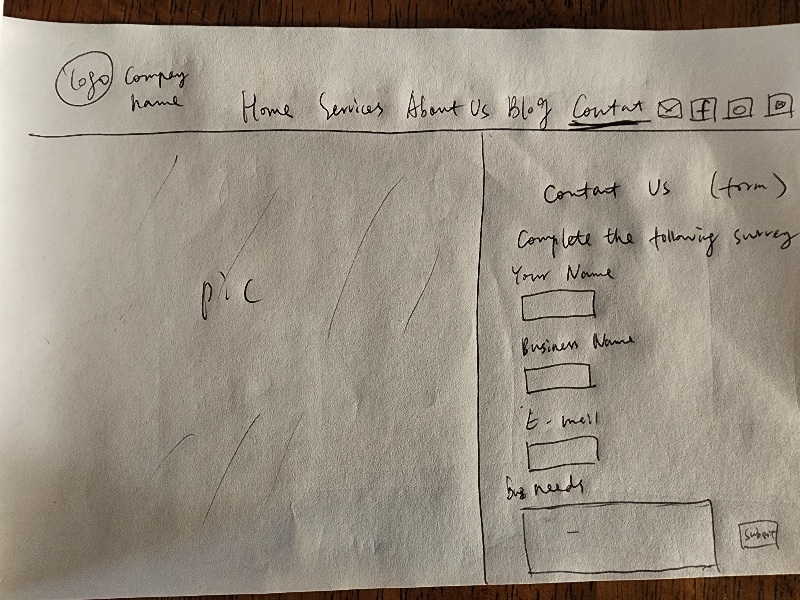 Logo
Company
name
Home Services About Us Blog Contat
f
pic
Contact Us (form)
Complete the following survey
Your Name
Business Name
E-mail
needs
Submit